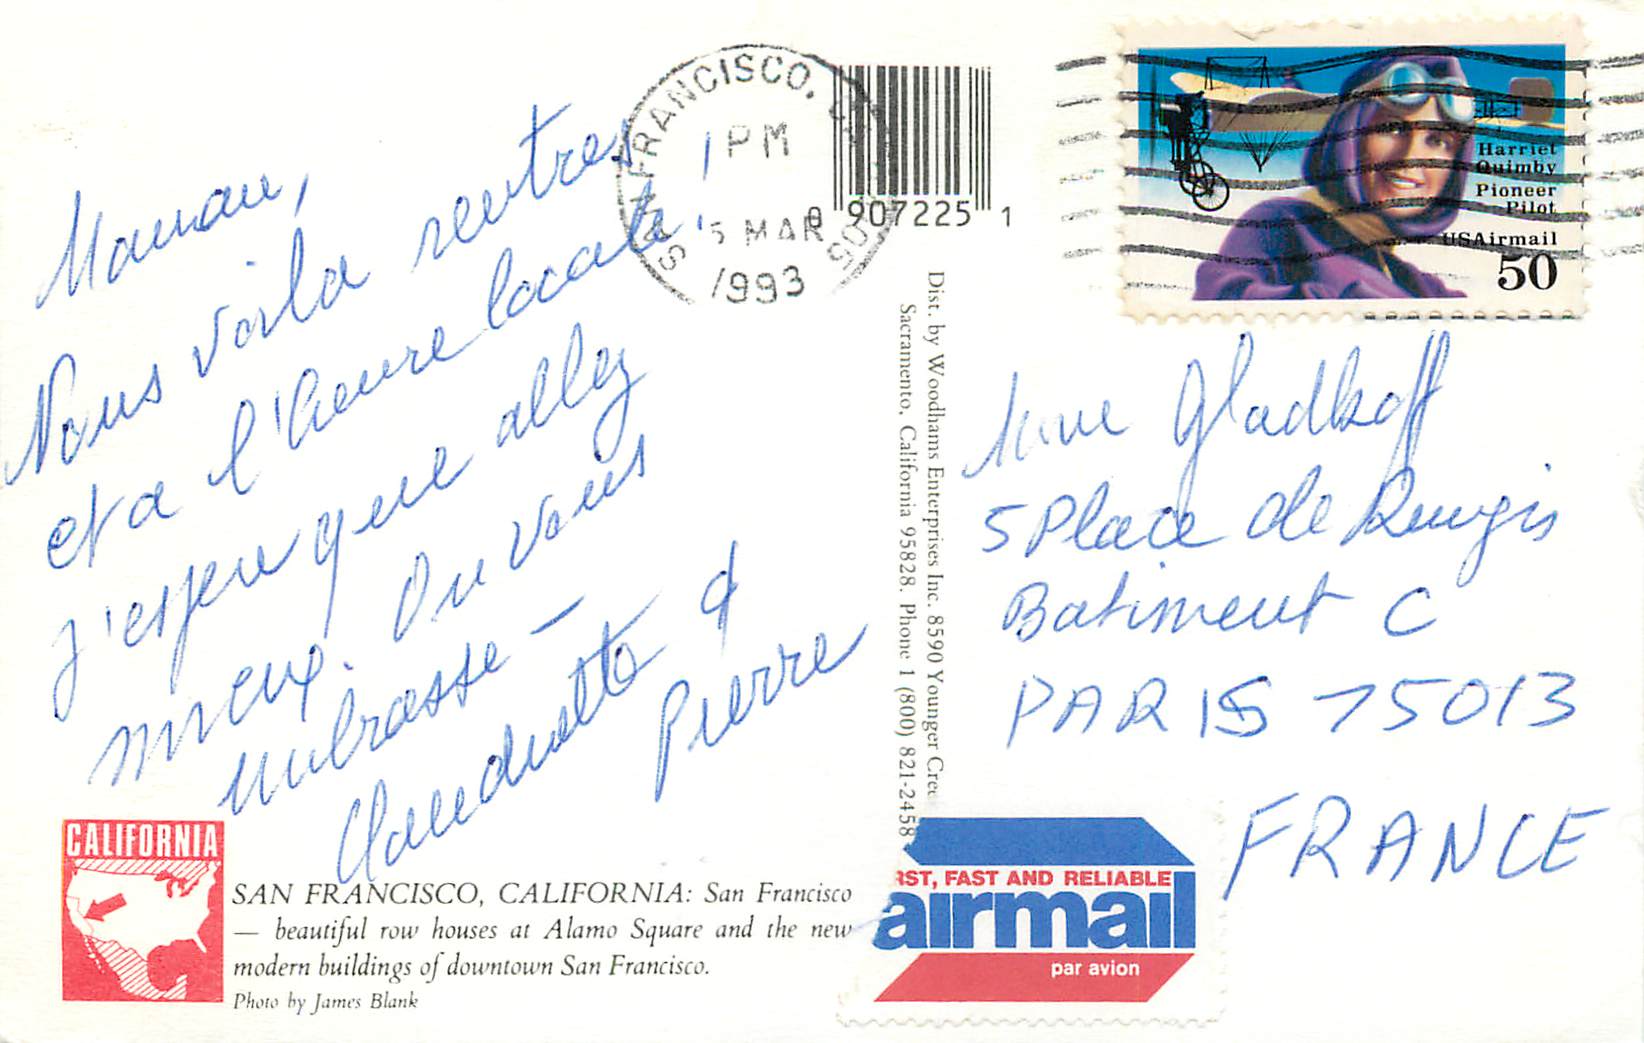 Maman,
Nous voila rentres
et a l'heure locale.
J'espere que allez
mieux. On vous
embrasse -
Claudette &
Pierre
CALIFORNIA
SAN FRANCISCO, CALIFORNIA: San Francisco
— beautiful row houses at Alamo Square and the new
modern buildings of downtown San Francisco.
Photo by James Blank
SAN FRANCISCO, CA
1 PM
5 MAR
1993
0 907225 1
Dist. by Woodhams Enterprises Inc. 8590 Younger Cre
Sacramento, California 95828. Phone 1 (800) 821-2458
Harriet
Quimby
Pioneer
Pilot
USAirmail
50
Mme Gladkoff
5 Place de Rungis
Batiment C
PARIS 75013
FRANCE
RST, FAST AND RELIABLE
airmail
par avion